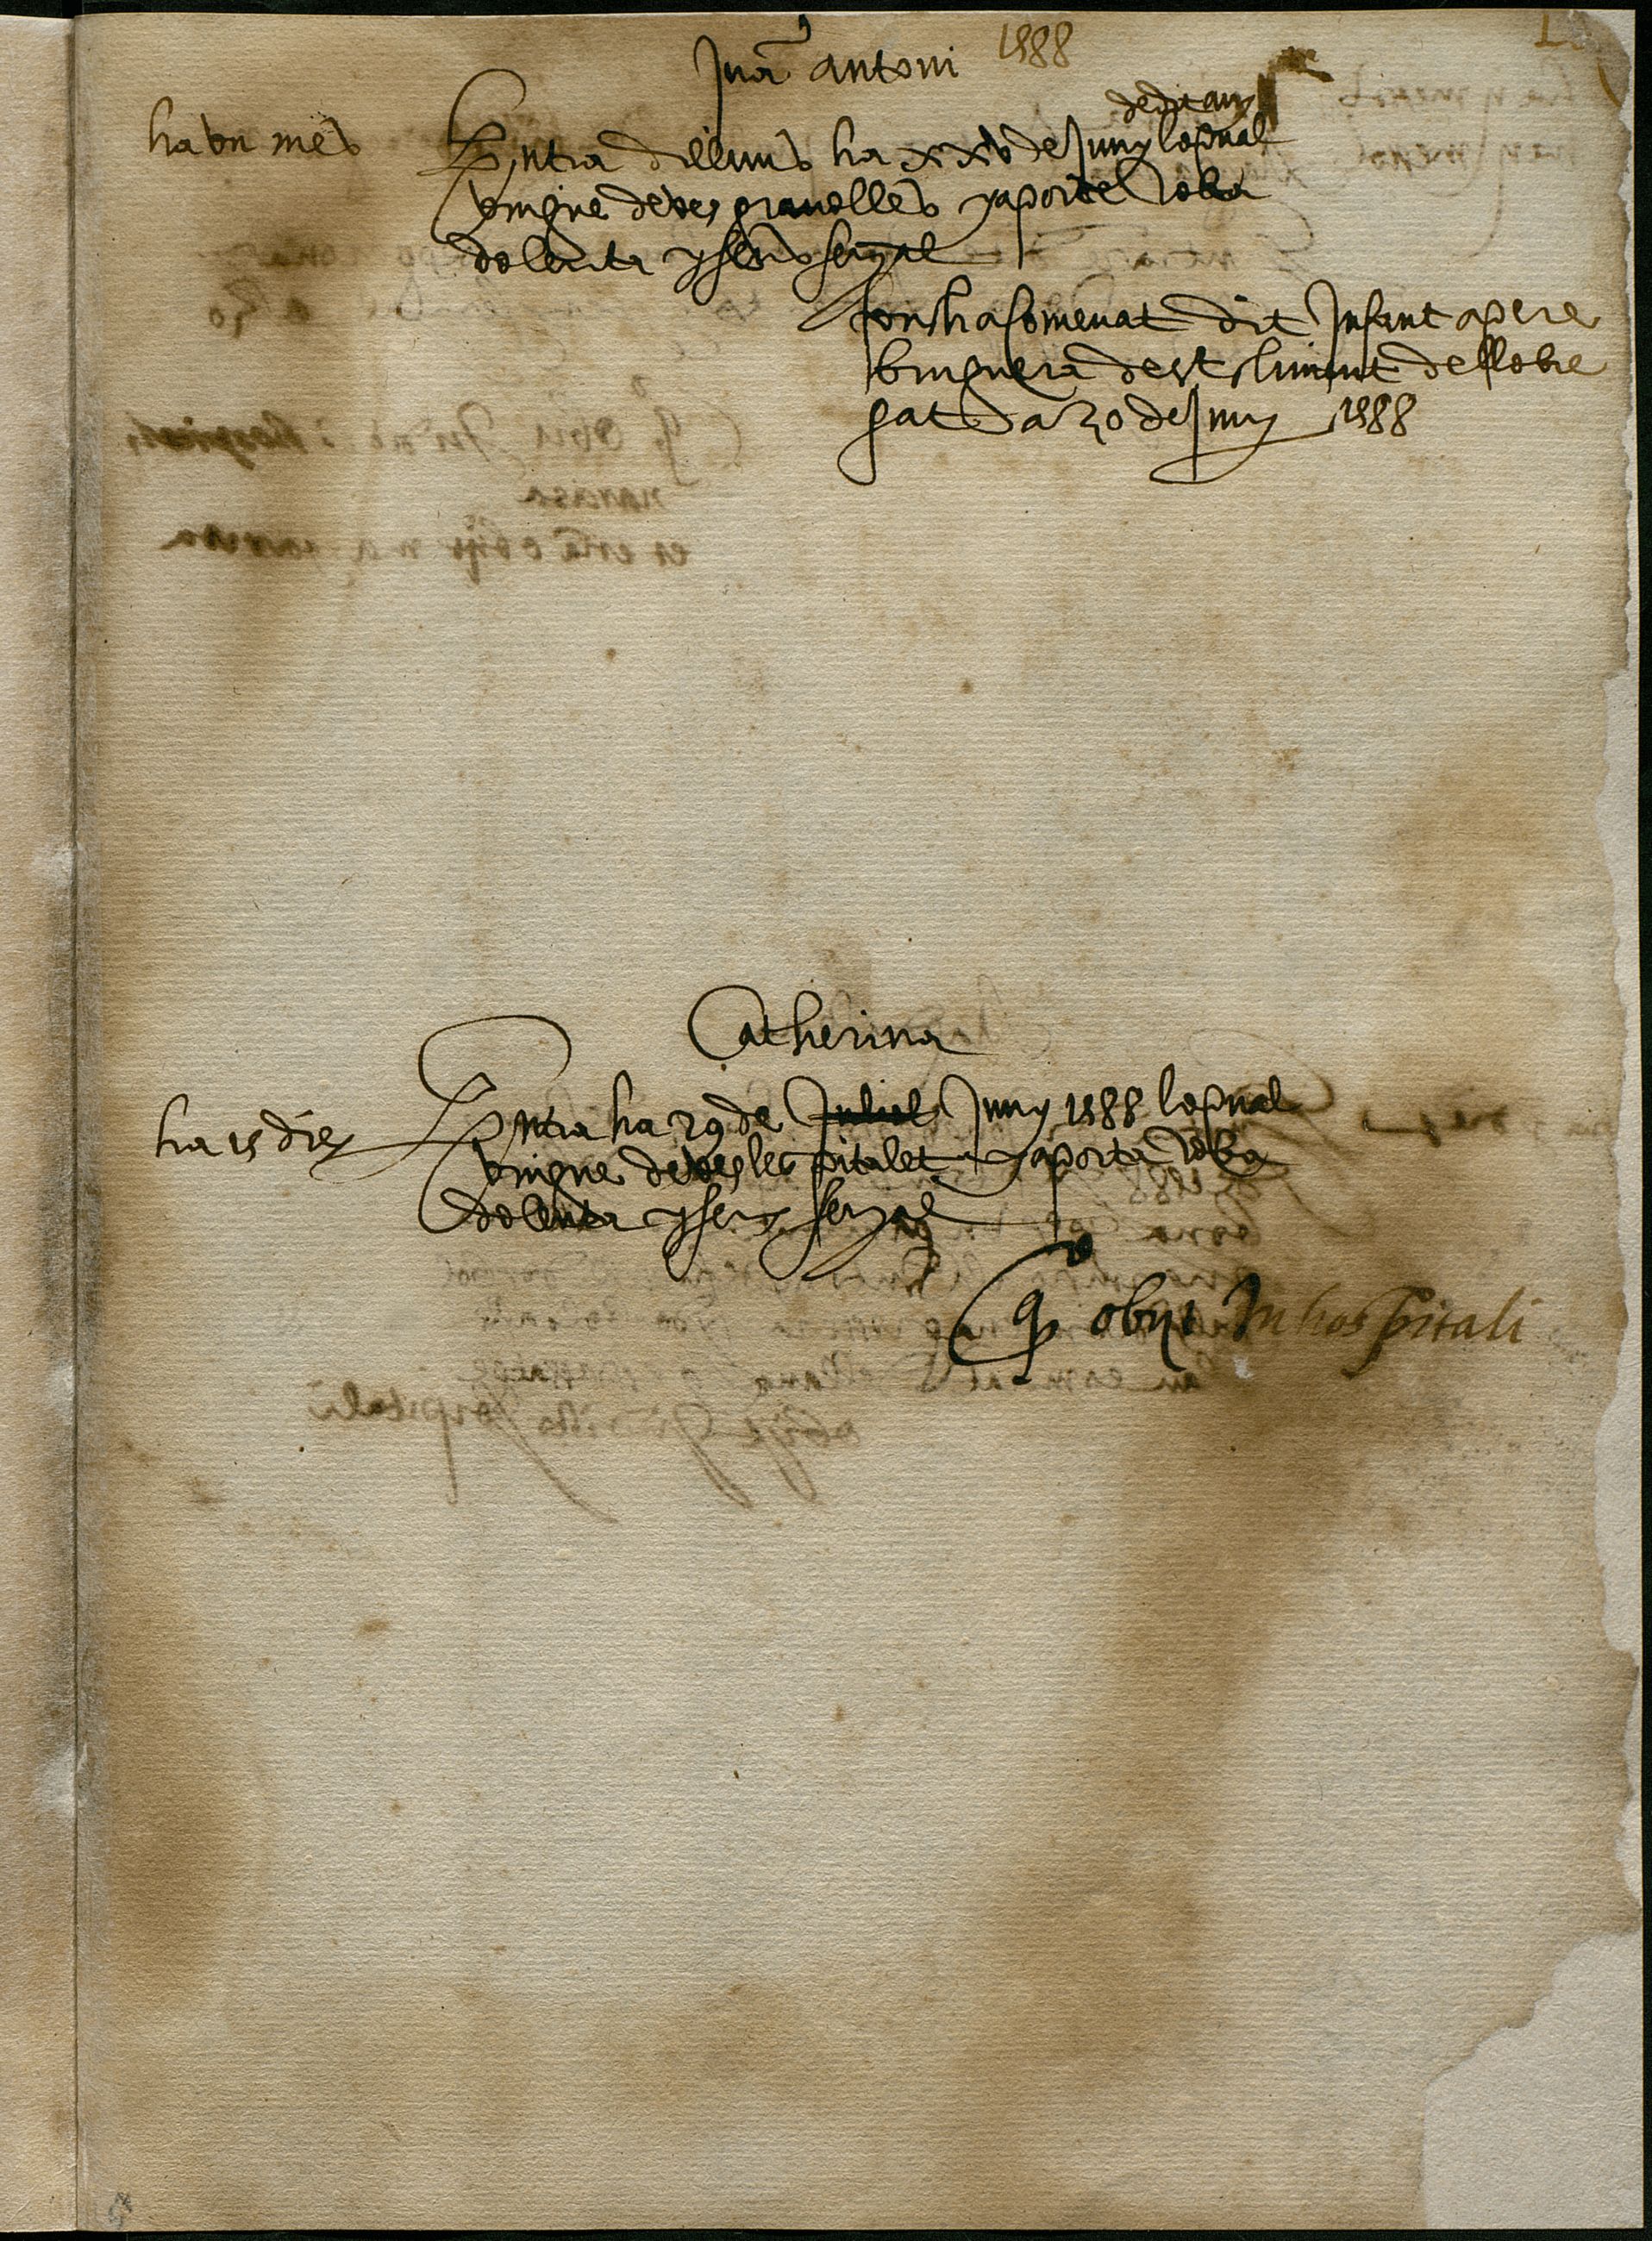 Juã antoni 1588
ha vn mes
dedit any
Entra dilluns ha xxv de Juny lo qual
vingue deves granolles y aporte roba
dolenta y sens senyal
fonch acomenat dit Infant a pere
bruguera de st climent dellobre
gat a 30 de Juny 1588
Catherina
ha 15 dies
Entra ha 29 de Juliol Juny 1588 lo qual
vingue deves lespitalet y aporta roba
dolenta y sens senyal
obijt In hospitali